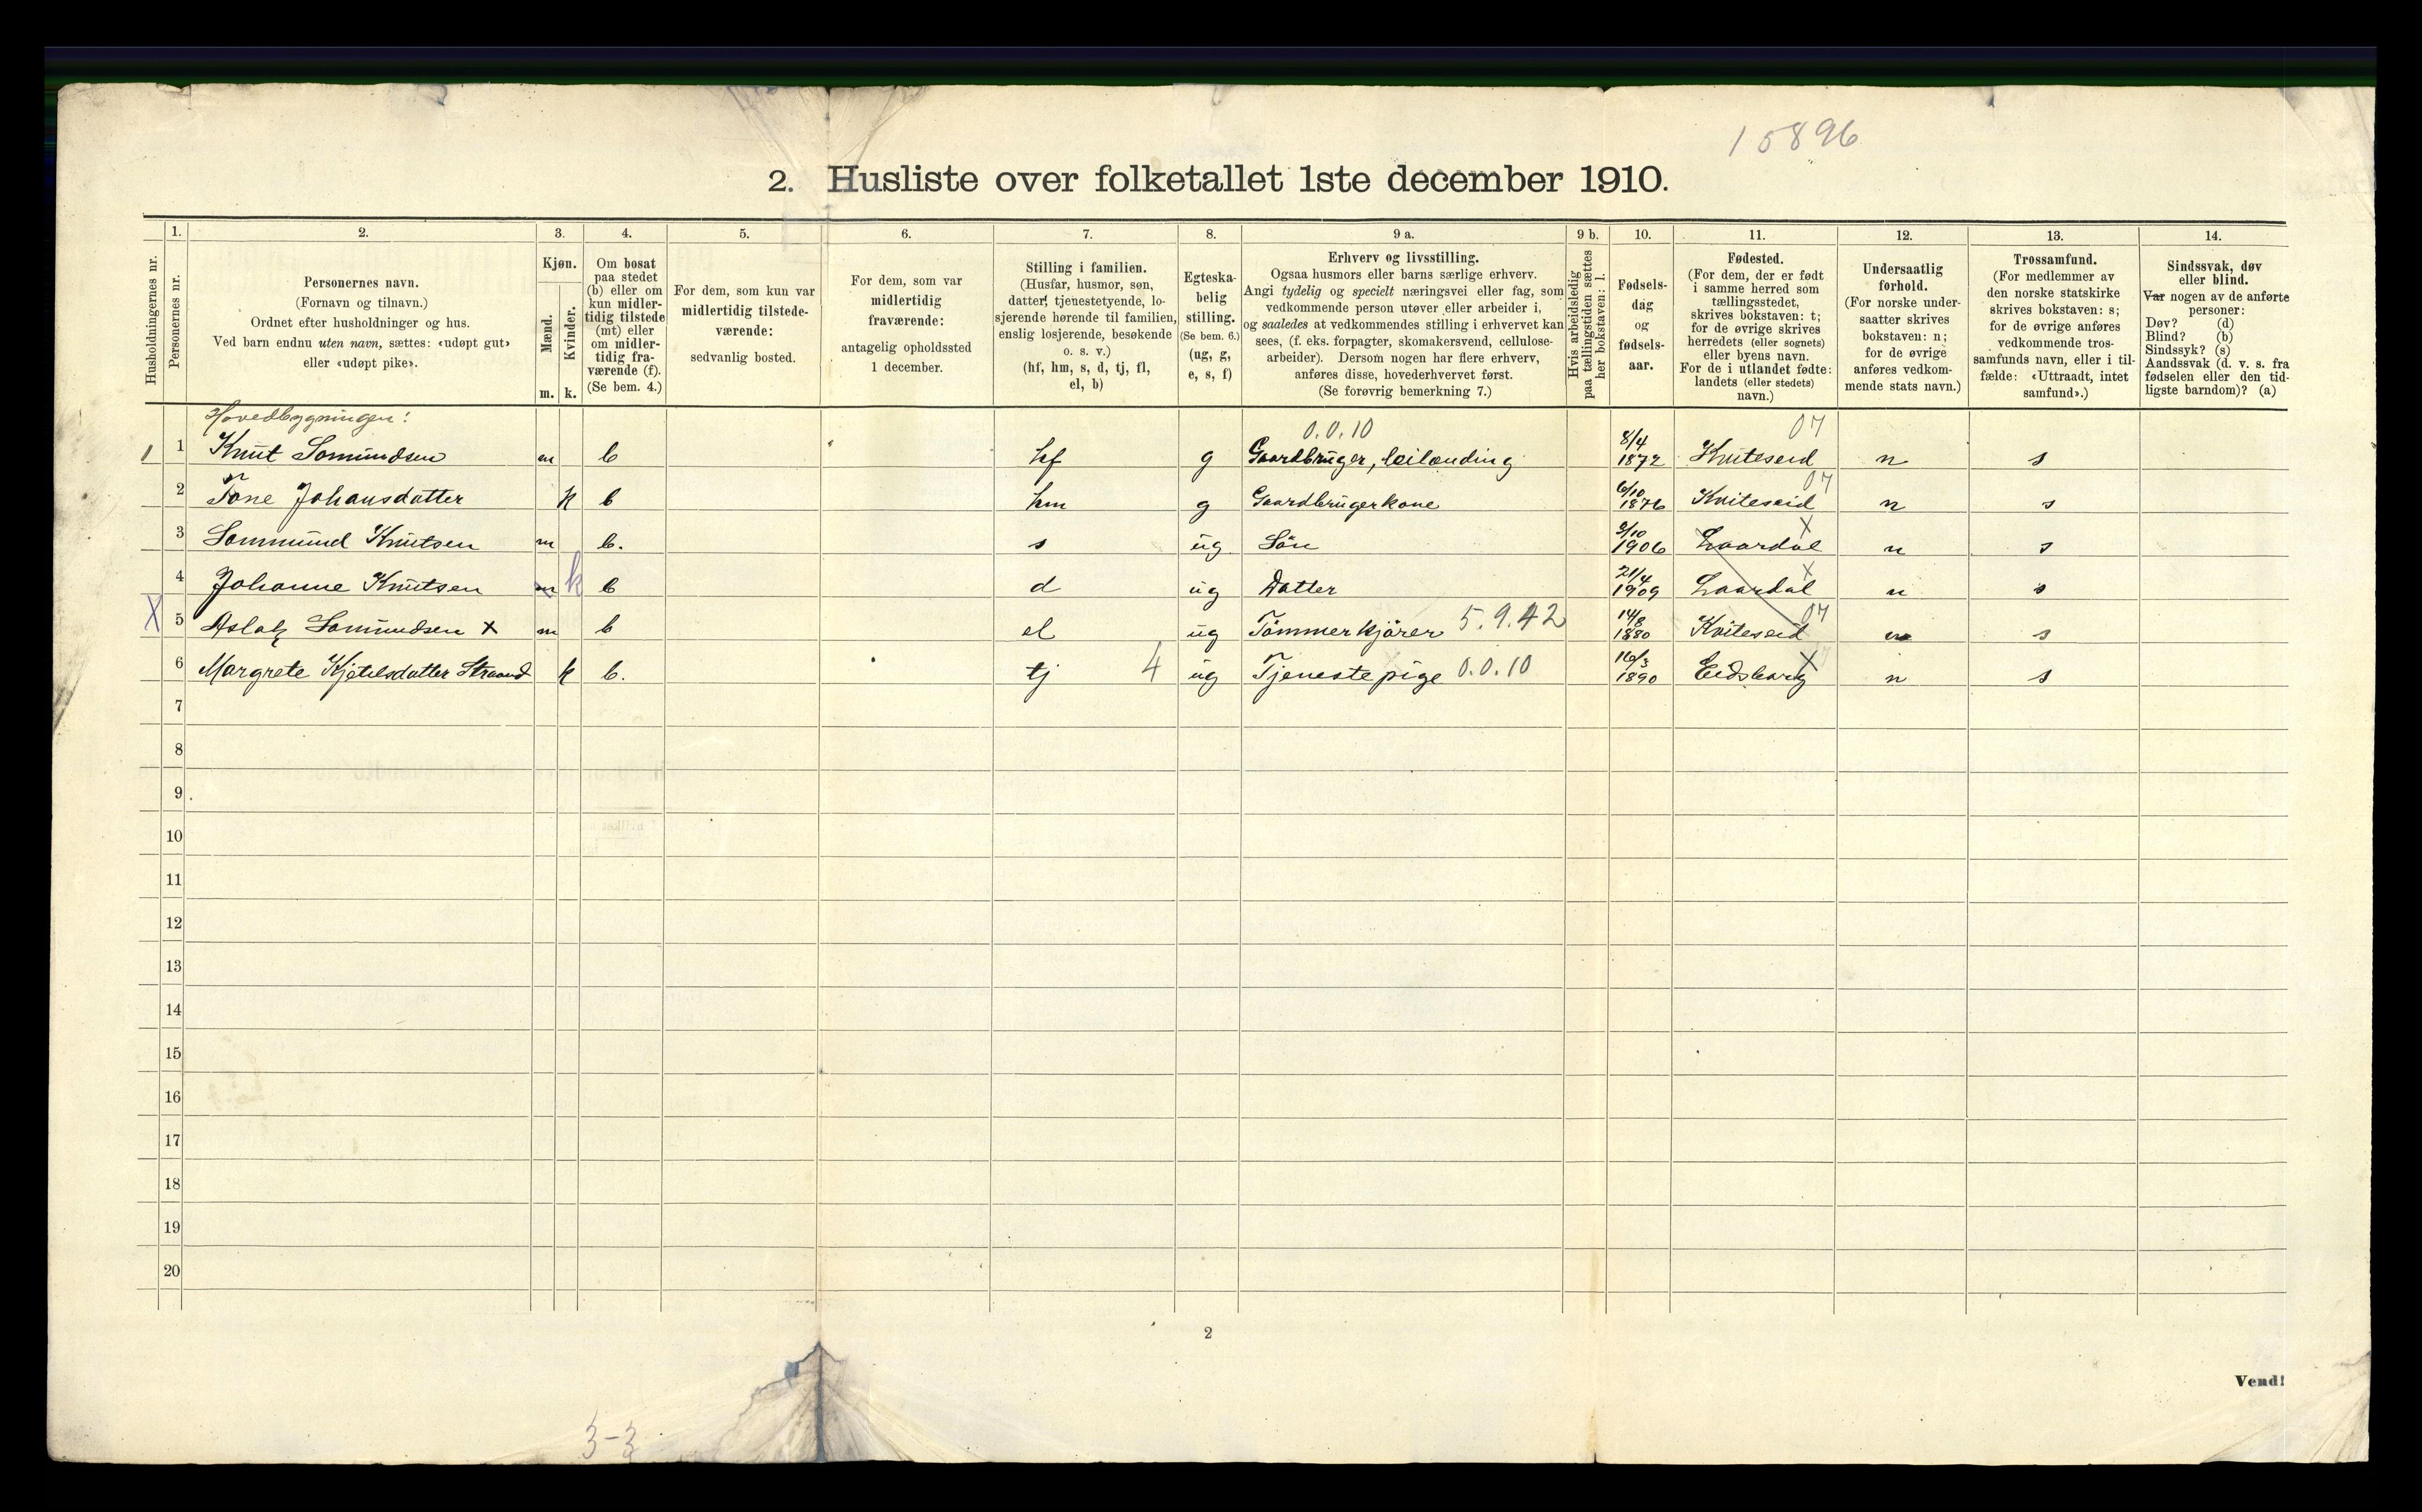 15896
2. Husliste over folketallet 1ste december 1910.
Husholdningernes nr.
1.
Personernes nr.
2.
Personernes navn.
(Fornavn og tilnavn.)
Ordnet efter husholdninger og hus.
Ved barn endnu uten navn, sættes: «udøpt gut»
eller «udøpt pike».
3.
Kjøn.
Mænd.
Kvinder.
m. k.
4.
Om bosat
paa stedet
(b) eller om
kun midler-
tidig tilstede
(mt) eller
om midler-
tidig fra-
værende (f).
(Se bem. 4.)
5.
For dem, som kun var
midlertidig tilstede-
værende:
sedvanlig bosted.
6.
For dem, som var
midlertidig
fraværende:
antagelig opholdssted
1 december.
7.
Stilling i familien.
(Husfar, husmor, søn,
datter, tjenestetyende, lo-
sjerende hørende til familien,
enslig losjerende, besøkende
o. s. v.)
(hf, hm, s, d, tj, fl,
el, b)
8.
Egteska-
belig
stilling.
(Se bem. 6.)
(ug, g,
e, s, f)
9 a.
Erhverv og livsstilling.
Ogsaa husmors eller barns særlige erhverv.
Angi tydelig og specielt næringsvei eller fag, som
vedkommende person utøver eller arbeider i,
og saaledes at vedkommendes stilling i erhvervet kan
sees, (f. eks. forpagter, skomakersvend, cellulose-
arbeider). Dersom nogen har flere erhverv,
anføres disse, hovederhvervet først.
(Se forøvrig bemerkning 7.)
9 b.
Hvis arbeidsledig
paa tællingstiden sættes
her bokstaven: l.
10.
Fødsels-
dag
og
fødsels-
aar.
11.
Fødested.
(For dem, der er født
i samme herred som
tællingsstedet,
skrives bokstaven: t;
for de øvrige skrives
herredets (eller sognets)
eller byens navn.
For de i utlandet fødte:
landets (eller stedets)
navn.)
12.
Undersaatlig
forhold.
(For norske under-
saatter skrives
bokstaven: n;
for de øvrige
anføres vedkom-
mende stats navn.)
13.
Trossamfund.
(For medlemmer av
den norske statskirke
skrives bokstaven: s;
for de øvrige anføres
vedkommende tros-
samfunds navn, eller i til-
fælde: «Uttraadt, intet
samfund».)
14.
Sindssvak, døv
eller blind.
Var nogen av de anførte
personer:
Døv? (d)
Blind? (b)
Sindssyk? (s)
Aandssvak (d. v. s. fra
fødselen eller den tid-
ligste barndom)? (a)
Hovedbygningen:
0.0.10 07
1 1 Knut Somundsen m b hf g Gaardbruger, leilænding 8/4 1872 Kviteseid n s
2 Tone Johansdatter k b hm g Gaardbrugerkone 6/10 1876 Kviteseid 07 n s
3 Sommund Knutsen m b. s ug Sön 3/10 1906 Laardal X n s
4 Johanne Knutsen m k b d ug Datter 21/4 1909 Laardal X n s
X 5 Aslak Somundsen X m b el ug Tömmerkjörer 5.9.42 14/8 1880 Kviteseid 07 n s
6 Margrete Kjetilsdatter Straand k b. tj 4 ug Tjenestepige 0.0.10 16/3 1890 Eidsborg X n s
7
8
9
10
11
12
13
14
15
16
17
18
19
20
2
Vend!
3-3